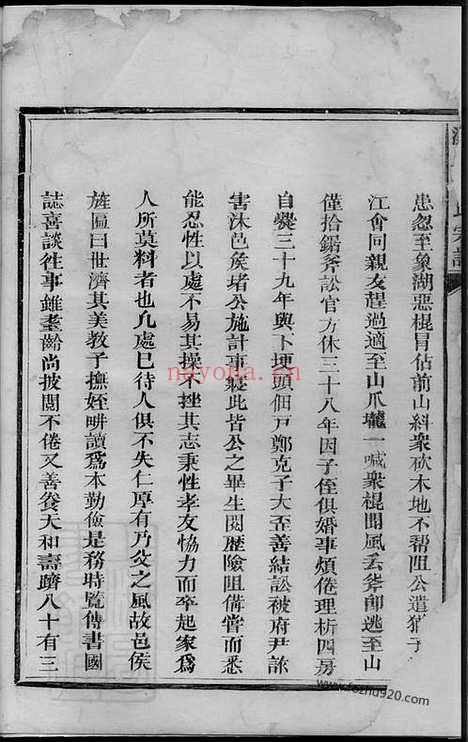 患忽至象湖惡棍冒佔前山糾衆砍木地不幫阻公遣猶子
江會同親友趕過適至山爪壠一喊衆棍聞風丢斧卽逃至山
僅拾鋸斧訟官方休三十八年因子侄俱婚事煩倦理析四房
自爨三十九年與下埂頭佃戸鄭克子大歪善結訟被府尹訴
害沐邑侯堵公施計事寢此皆公之畢生閱歷險阻備嘗而悉
能忍性以處不易其操不挫其志秉性孝友恊力而卒起家爲
人所莫料者也凢處巳待人俱不失仁厚有乃父之風故邑侯
旌匾曰世濟其美教子撫姪畊讀爲本勤儉是務時覽傳書國
誌喜談徃事雖耋齡尚披閱不倦又善養天和壽躋八十有三
氏宗譜
nayona.cn
www.fozhu920.com